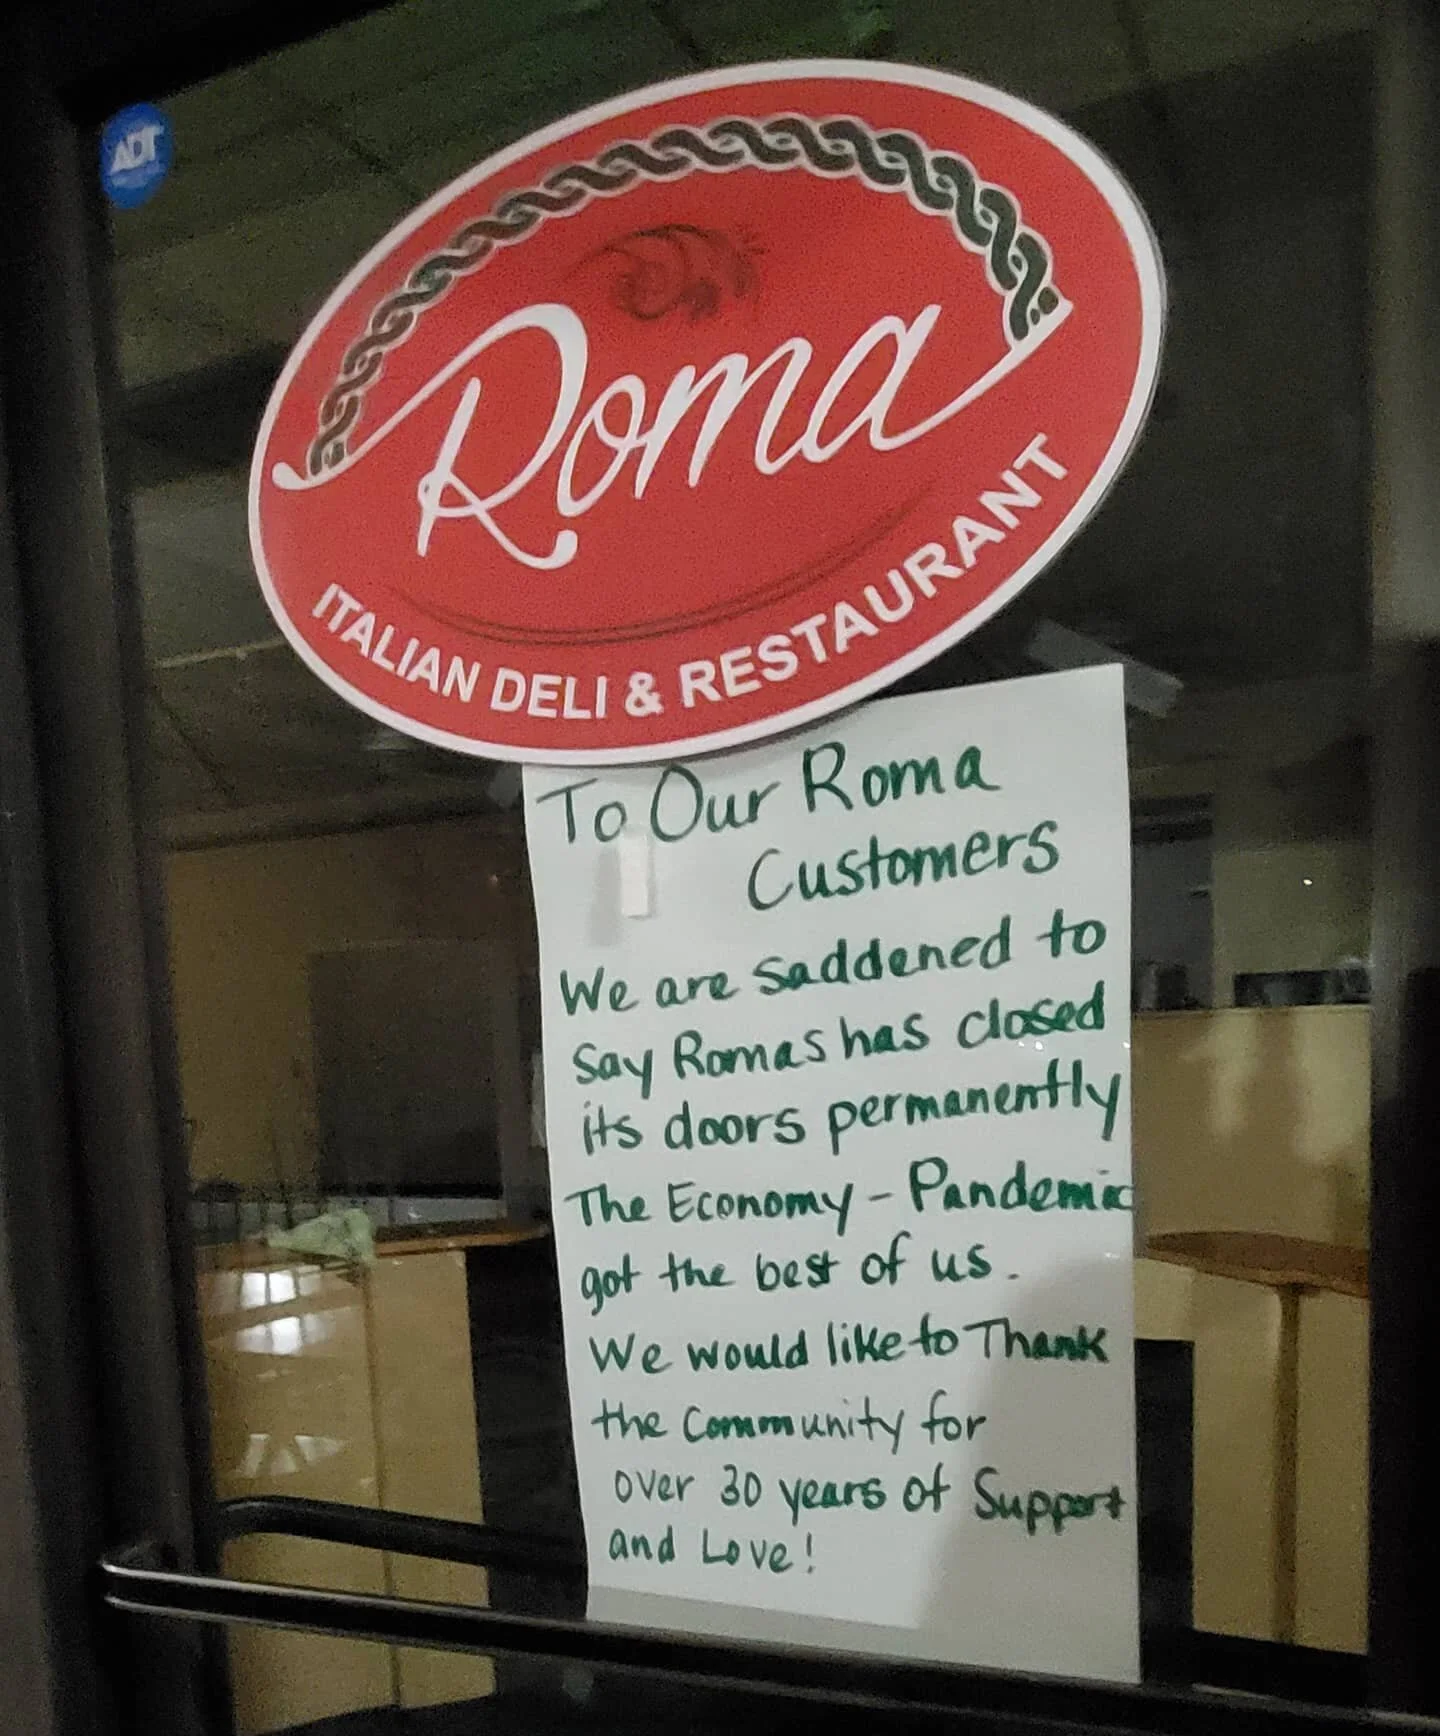 ADT
Roma
ITALIAN DELI & RESTAURANT
To Our Roma
Customers
We are saddened to
say Romas has closed
its doors permanently
The Economy - Pandemic
got the best of us.
We would like to Thank
the Community for
over 30 years of Support
and Love!